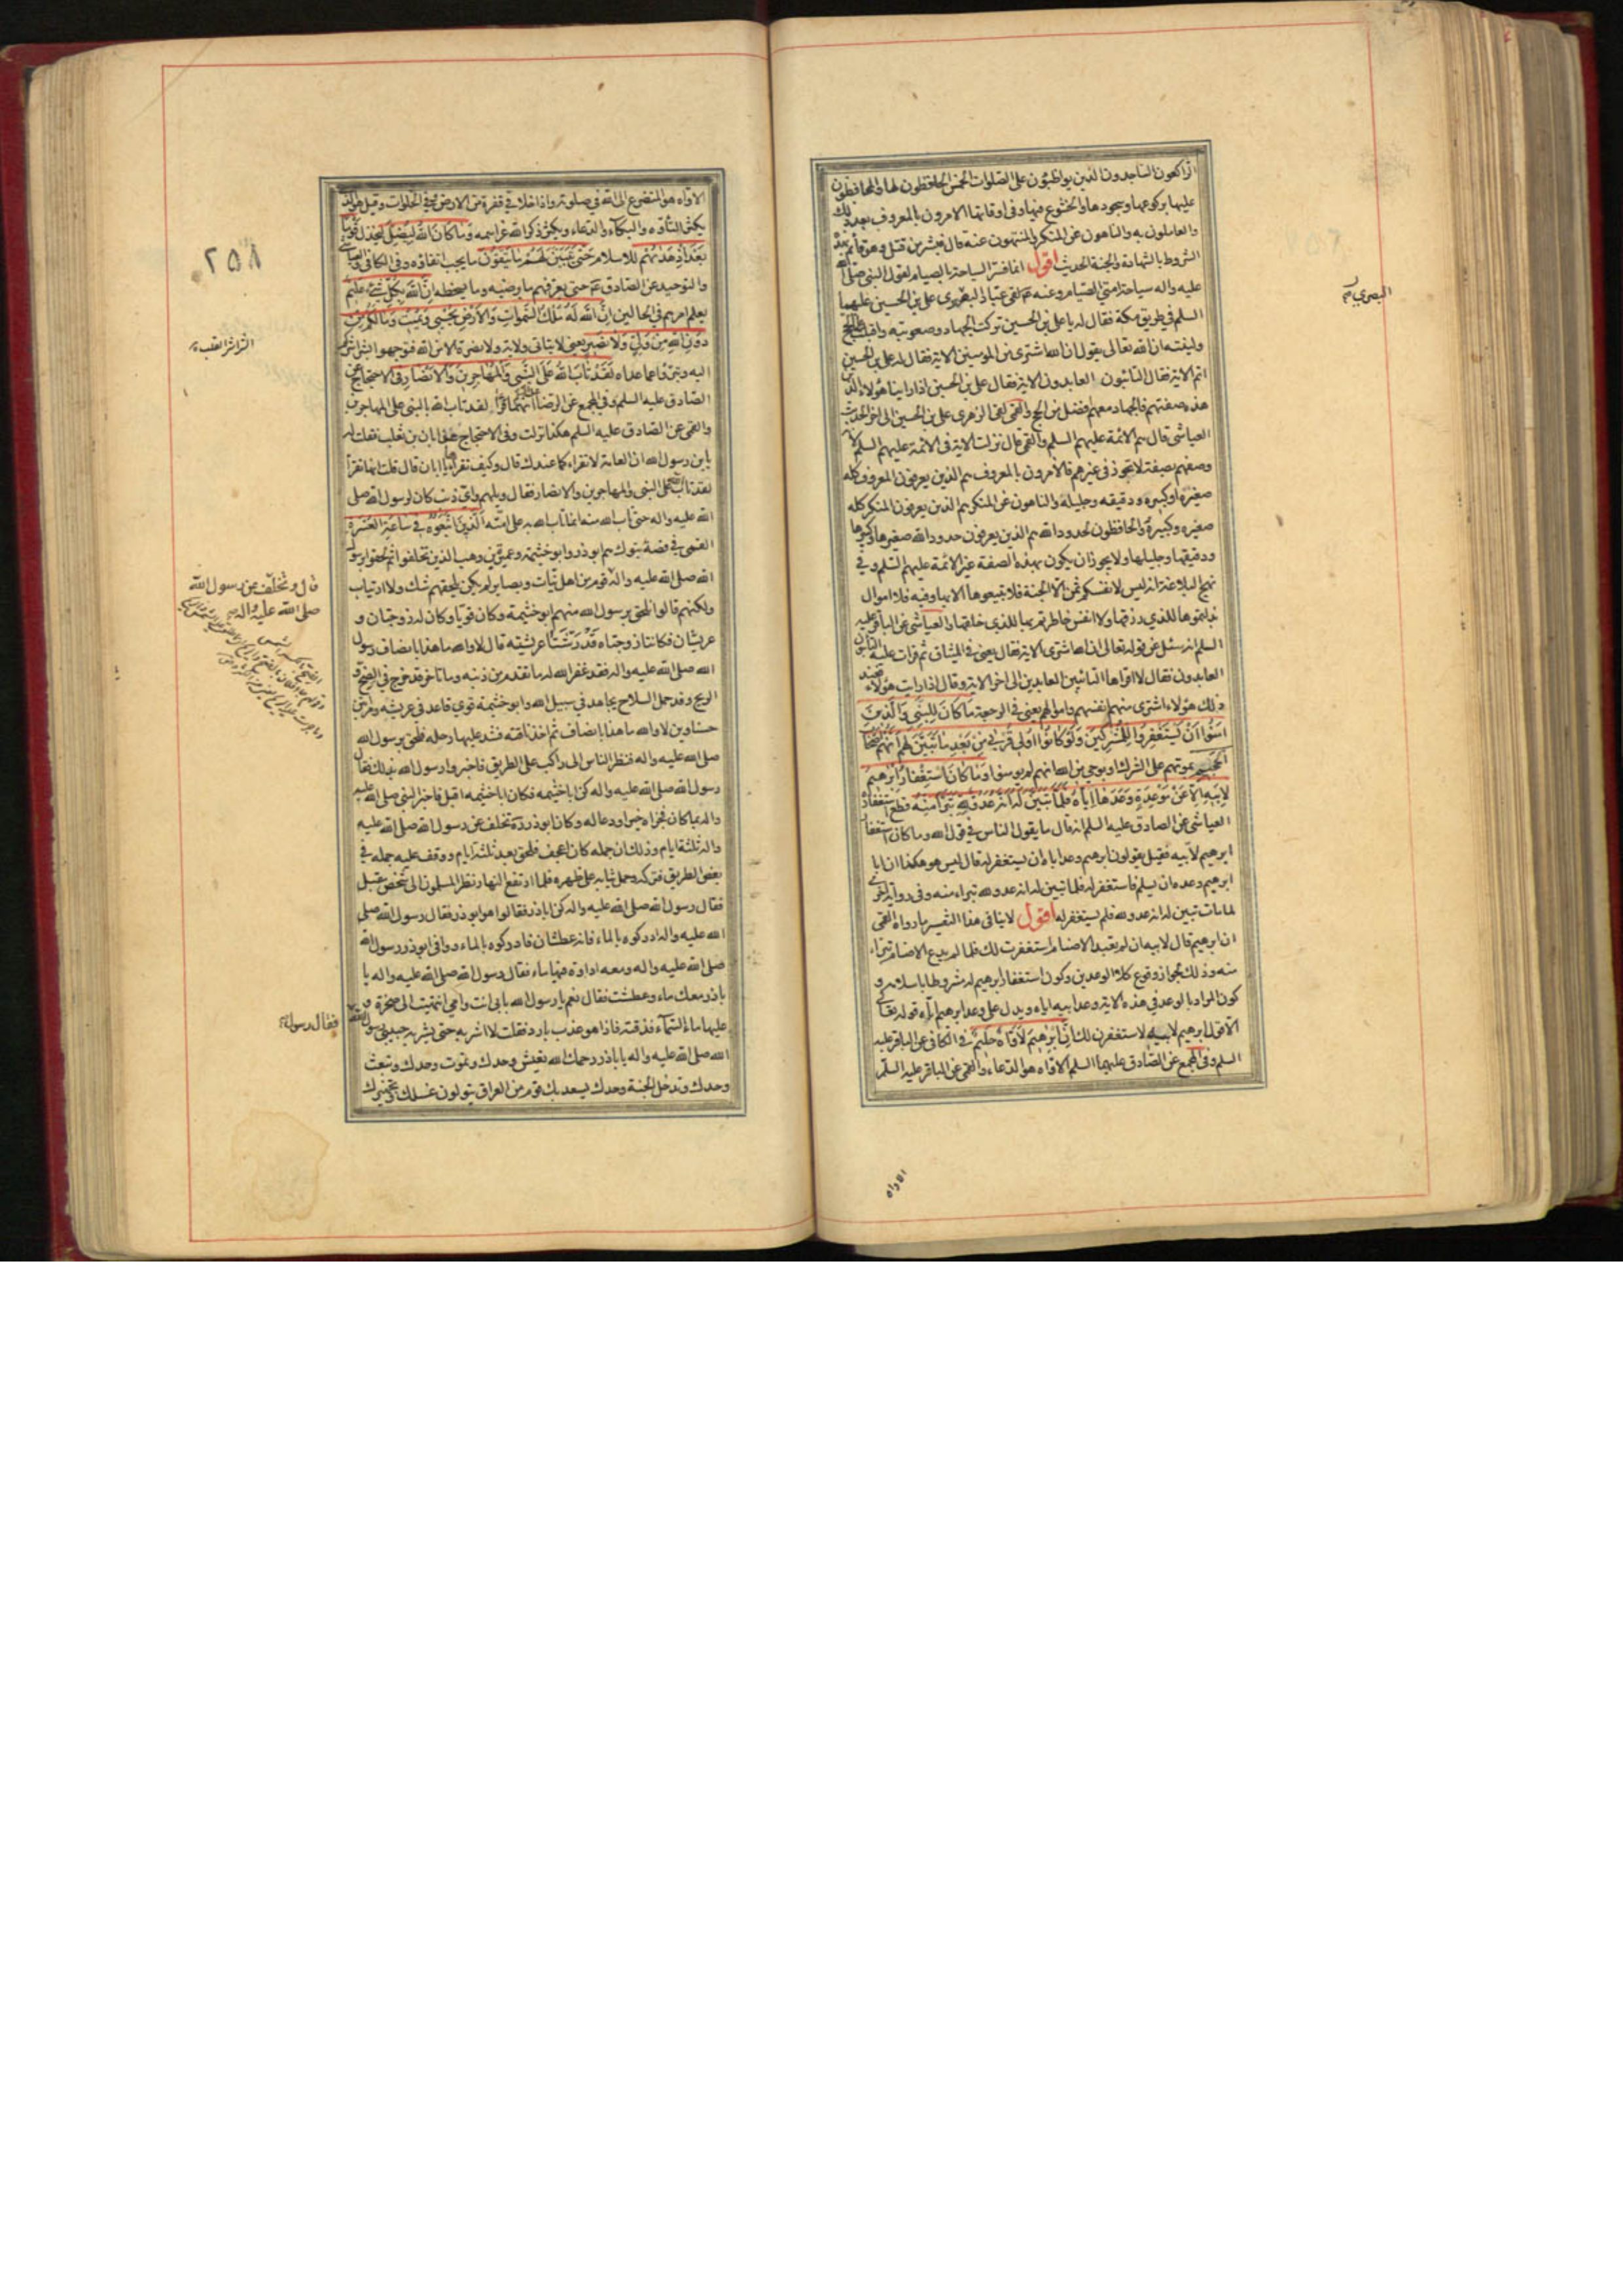 الراكعون الساجدون الذين يواظبون على الصلوات الخمس الحافظون لها والمحافظون
عليها بركوعها وسجودها والخشوع فيها وفي اوقاتها الامرون بالمعروف بعد ذلك
والعاملون به والناهون عن المنكر والمنتهون عنه قال فبشر من قتل وهو قائم بهذه
الشروط بالشهادة والجنة الحديث اقول انما فسر السياحة بالصيام لقول النبي صلى الله
عليه واله سياحة امتي الصيام وعنه لقى عباد البصرى على بن الحسين عليهما
البصري
السلم في طريق مكة فقال له يا على بن الحسين تركت الجهاد وصعوبته واقبلت على الحج
ولينته ان الله تعالى يقول ان الله اشترى من المؤمنين الاية فقال له على بن الحسين
اتم الاية فقال التائبون العابدون الاية فقال على بن الحسين اذا راينا هؤلاء الذين
هذه صفتهم فالجهاد معهم افضل من الحج والقمى لقى الزهرى على بن الحسين الى اخر الحديث
العياشى قال هم الائمة عليهم السلم والقمى قال نزلت الاية فى الائمة عليهم السلم لانه
وصفهم بصفة لا تجوز فى غيرهم فالآمرون بالمعروف هم الذين يعرفون المعروف كله
صغيره وكبيره ودقيقه وجليله والناهون عن المنكر هم الذين يعرفون المنكر كله
صغيره وكبيره والحافظون لحدود الله هم الذين يعرفون حدود الله صغيرها وكبيرها
ودقيقها وجليلها ولا يجوز ان يكون بهذه الصفة غير الائمة عليهم السلم وفي
نهج البلاغة انه ليس لانفسكم ثمن الا الجنة فلا تبيعوها الا بها وفيه فلا اموال
بذلتموها للذي رزقها ولا انفس خاطرتم بها للذي خلقها والعياشى عن الباقر عليه
السلم انه سئل عن قوله تعالى ان الله اشترى الاية فقال يعنى في الميثاق ثم قرات عليه التائبون
العابدون فقال لا اقراها التائبين العابدين الى اخر الاية وقال اذا رايت هؤلاء فعند
ذلك هؤلاء اشترى منهم انفسهم واموالهم يعنى في الرجعة ما كان للنبي والذين
امنوا ان يستغفروا للمشركين ولو كانوا اولى قربى من بعد ما تبين لهم انهم اصحاب
الجحيم بموتهم على الشرك او بوحي من الله انهم لم يومنوا وما كان استغفار ابرهيم
لابيه الا عن موعدة وعدها اياه فلما تبين له انه عدو لله تبرا منه قطع استغفاره
العياشى عن الصادق عليه السلم انه قال ما يقول الناس في قول الله وما كان استغفار
ابرهيم لابيه فقيل يقولون ابرهيم وعد اباه ان يستغفر له قال ليس هو هكذا ان ابا
ابرهيم وعده ان يسلم فاستغفر له فلما تبين له انه عدو لله تبراء منه وفى رواية اخرى
لما مات تبين له انه عدو لله فلم يستغفر له اقول لا ينافى هذا التفسير ما رواه القمى
ان ابرهيم قال لابيه ان لم تعبد الاصنام استغفرت لك فلما لم يدع الاصنام تبراء
منه وذلك لجواز وقوع كلا الوعدين وكون استغفار ابرهيم له مشروطا باسلامه و
كون المراد بالوعد في هذه الاية وعد ابيه اياه ويدل على وعد ابرهيم اياه قوله تعالى
الا قول ابرهيم لابيه لاستغفرن لك ان ابرهيم لاواه حليم في الكافى عن الباقر عليه
السلم وفى المجمع عن الصادق عليهما السلم الاواه هو الدعاء والقمى عن الباقر عليه السلم
الاواه
الاواه هو المتضرع الى الله في صلوته واذا خلا في قفرة من الارض وفي الخلوات وقيل هو الذى
يكثر التأوه والبكاء والدعاء ويكثر ذكر الله عز اسمه وما كان الله ليضل ليخذل قوما
بعد اذ هداهم للاسلام حتى يبين لهم ما يتقون ما يجب اتقاؤه وفي الكافى والعياشى
٢٥٨
والتوحيد عن الصادق حتى يعرفهم ما يرضيه وما يسخطه ان الله بكل شئ عليم
يعلم امرهم في الحالين ان الله له ملك السموات والارض يحيى ويميت وما لكم من
دون الله من ولي ولا نصير يعنى لا يتاتى ولاية ولا نصرة الا من الله فتوجهوا بشراشركم
اليه وتبرؤا عما عداه لقد تاب الله على النبى والمهاجرين والانصار في الاحتجاج عن
الصادق عليه السلم وفي المجمع عن الرضا انهما قرا لقد تاب الله بالنبى على المهاجرين
والقمى عن الصادق عليه السلم هكذا نزلت وفى الاحتجاج عنه ابان بن تغلب فقلت له
يا ابن رسول الله ان العامة لا تقراء كما عندك قال وكيف تقراها يا ابان قال قلت انها تقرأ
لقد تاب الله على النبى والمهاجرين والانصار فقال ويلهم واى ذنب كان لرسول الله صلى
الله عليه واله حتى تاب الله منه انما تاب الله به على امته الذين اتبعوه في ساعة العسرة
القمى في قصة تبوك هم ابوذر وابو خثيمة وعمير بن وهب الذين تخلفوا ثم لحقوا برسول
قال وتخلف عن رسول الله
صلى الله عليه واله
الله صلى الله عليه واله قوم من اهل ثبات وبصاير لم يكن يلحقهم شك ولا ارتياب
ولكنهم قالوا نلحق برسول الله منهم ابو خثيمة وكان قويا وكان له زوجتان و
عريشان فكانتا زوجتاه قد رشتا عريشيه قال لا والله ما هذا بانصاف رسول
الله صلى الله عليه واله فقد غفر الله له ما تقدم من ذنبه وما تاخر قد خرج في الضح و
الريح وقد حمل السلاح يجاهد في سبيل الله وابو خثيمة قوي قاعد في عريشه وامراتين
حسناوين لا والله ما هذا بانصاف ثم اخذ ناقته فشد عليها رحله فلحق برسول الله
صلى الله عليه واله فنظر الناس الى راكب على الطريق فاخبروا رسول الله بذلك فقال
رسول الله صلى الله عليه واله كن ابا خثيمه فكان ابا خثيمه اقبل فاخبر النبى صلى الله عليه
واله بما كان فجزاه خيرا ودعا له وكان ابوذر ره تخلف عن رسول الله صلى الله عليه
واله ثلثة ايام وذلك ان جمله كان اعجف فلحق بعد ثلثة ايام ووقف عليه جمله في
بعض الطريق فتركه وحمل ثيابه على ظهره فلما ارتفع النهار نظر المسلمون الى شخص مقبل
فقال رسول الله صلى الله عليه واله كن اباذر فقالوا هو ابوذر فقال رسول الله صلى
الله عليه واله ادركوه بالماء فانه عطشان فادركوه بالماء ووافى ابوذر رسول الله
صلى الله عليه واله ومعه اداوة فيها ماء فقال رسول الله صلى الله عليه واله يا
باذر معك ماء وعطشت فقال نعم يا رسول الله بابى انت وامي انتهيت الى صخرة و
عليها ماء السماء فذقته فاذا هو عذب بارد فقلت لا اشربه حتى يشربه حبيبي رسول الله
فقال رسول
الله صلى الله عليه واله يا باذر رحمك الله تعيش وحدك وتموت وحدك وتبعث
وحدك وتدخل الجنة وحدك يسعد بك قوم من العراق يتولون غسلك وتجهيزك